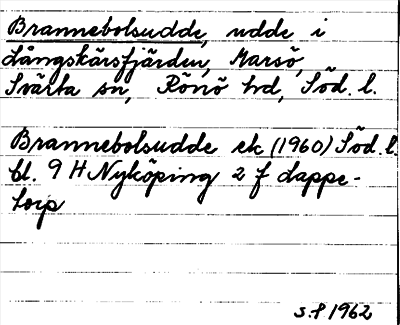 Brannebolsudde, udde i
Långskärsfjärden, Marsö,
Svärta sn, Rönö hd, Söd. l.
Brannebolsudde ek (1960) Söd. l.
bl. 9 H Nyköping 2 f dappe-
loip
s.f 1962